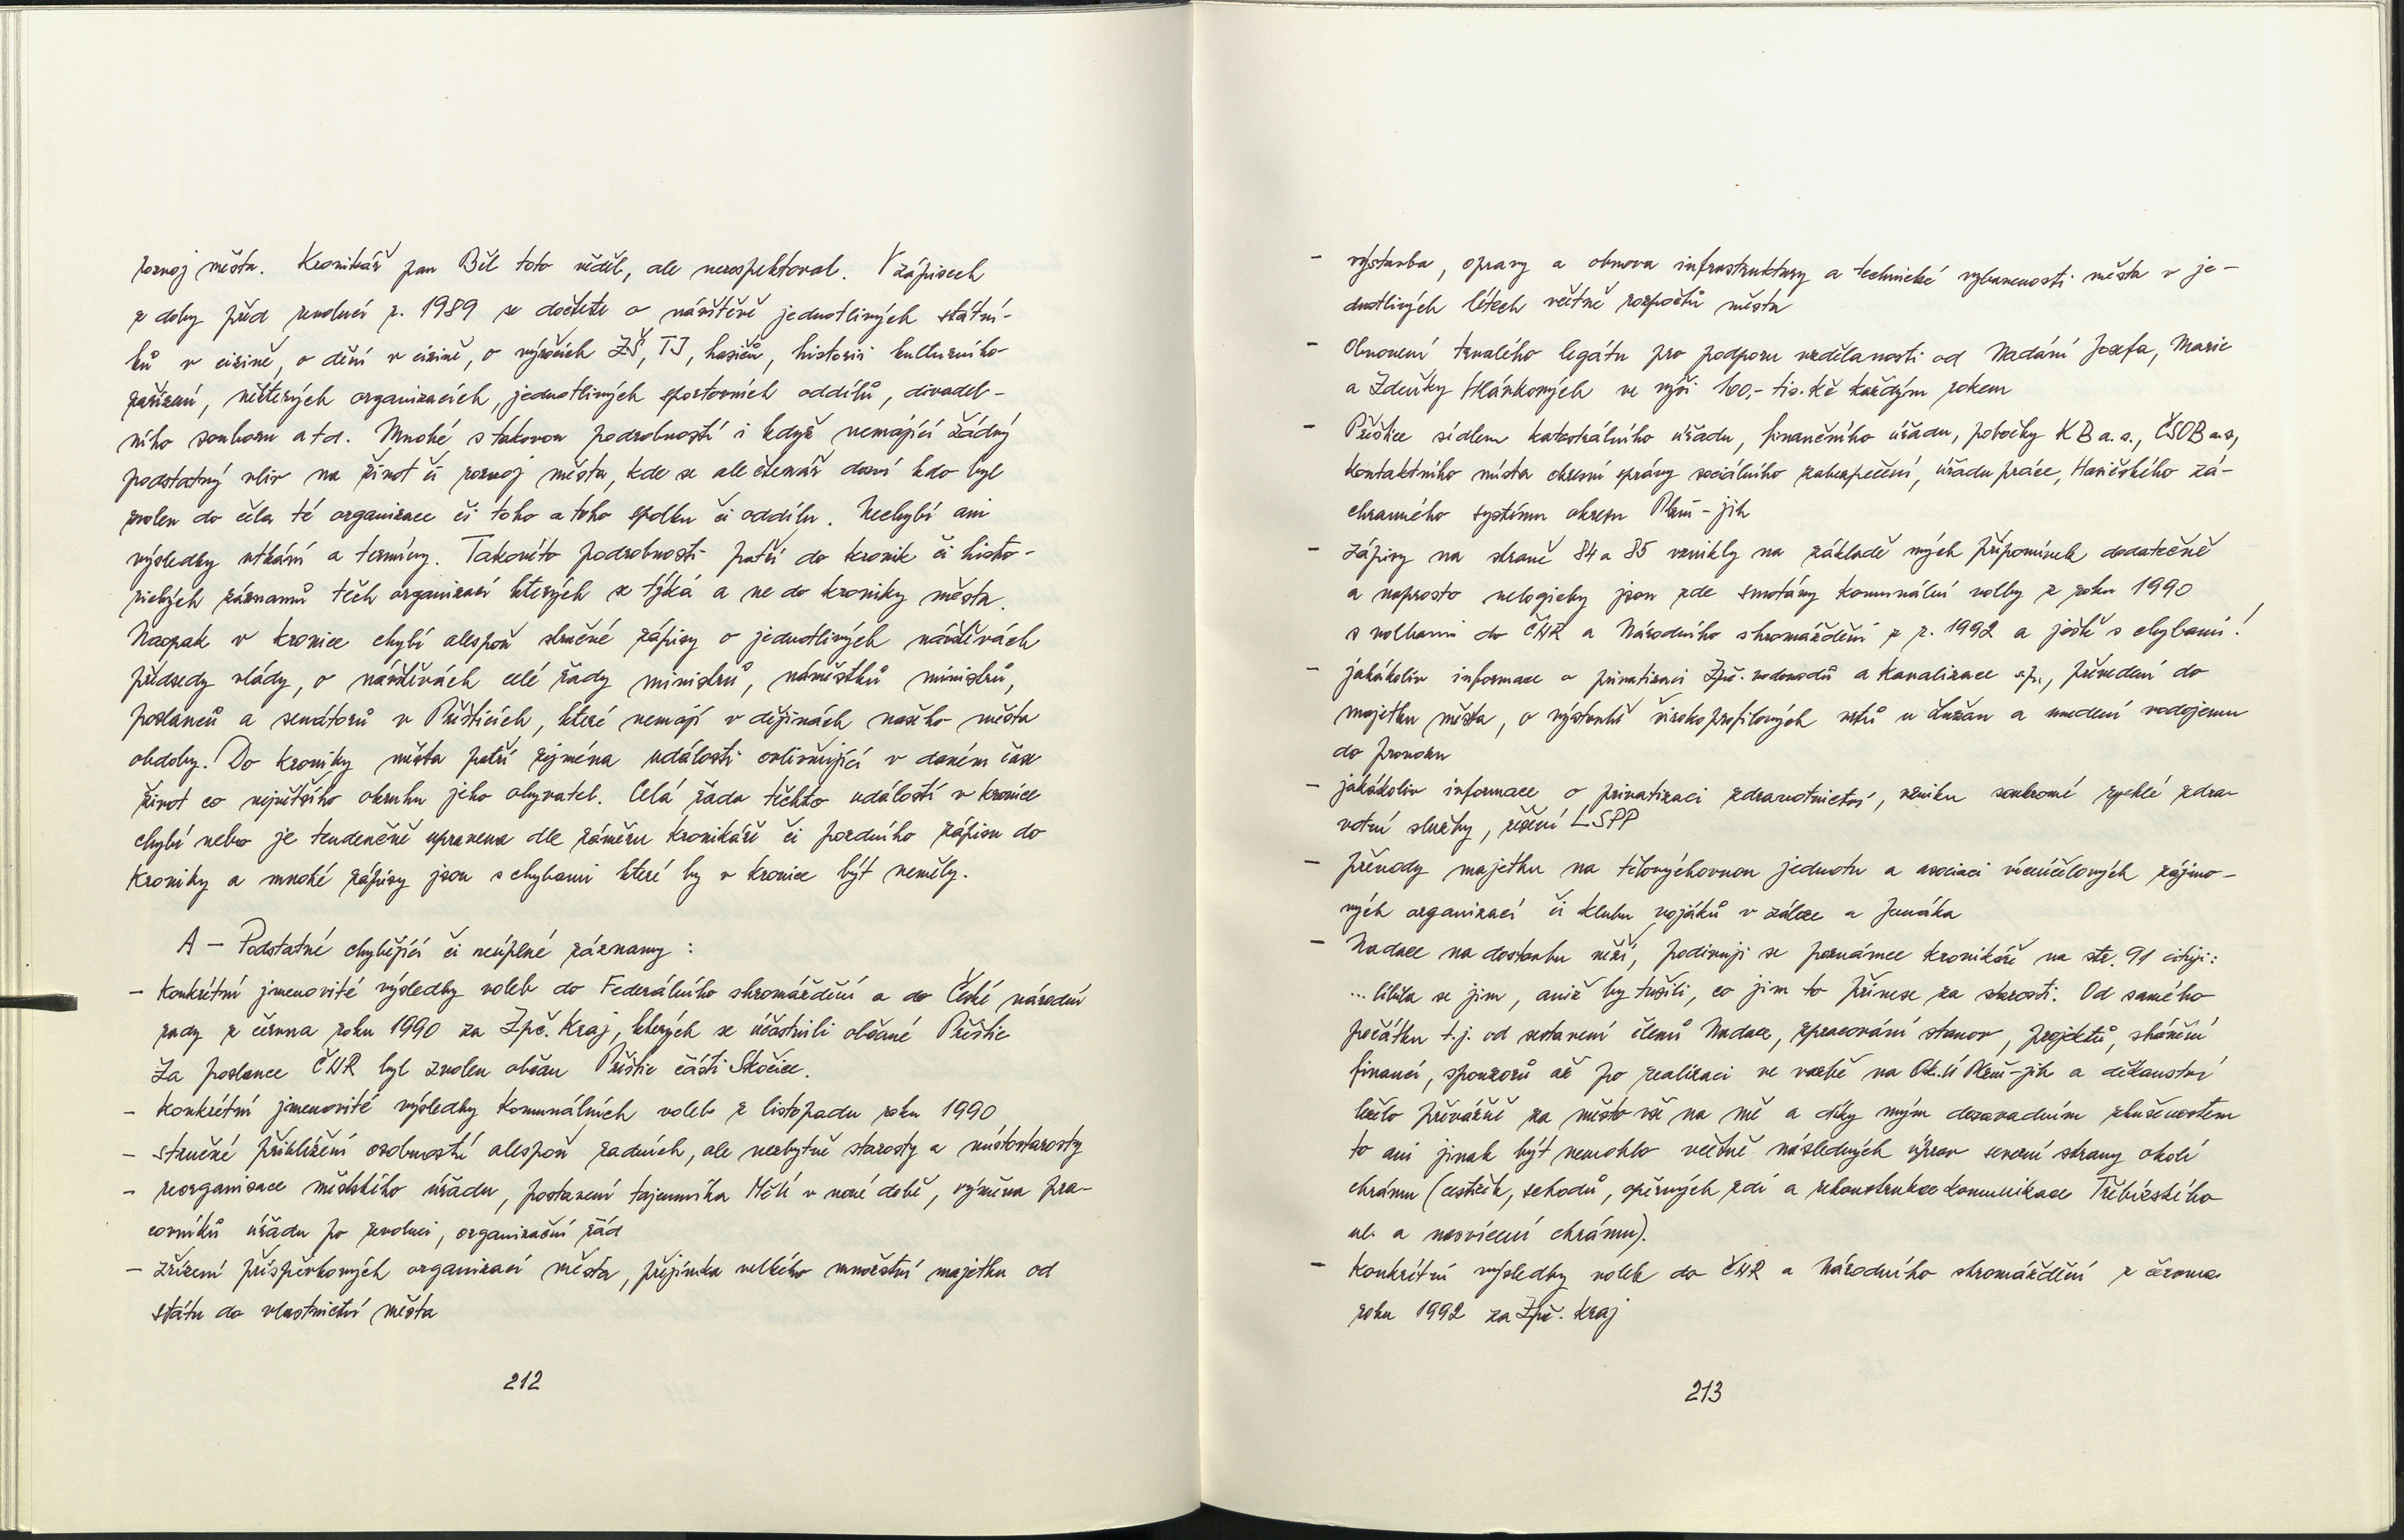 rozvoj města. Kronikář pan Běl toto věděl, ale nerespektoval. V zápisech
z doby před revolucí r. 1989 se dočtete o návštěvě jednotlivých státní-
ků v cizině, o dění v cizině, o výročích ZŠ, TJ, hasičů, historii kulturního
zařízení, některých organizacích, jednotlivých sportovních oddílů, divadel-
ního souboru atd. Mnohé s takovou podrobností i když nemající žádný
podstatný vliv na život či rozvoj města, kde se ale čtenář doví kdo byl
zvolen do čela té organizace či toho a toho spolku či oddílu. Nechybí ani
výsledky utkání a termíny. Takovéto podrobnosti patří do kronik či histo-
rických záznamů těch organizací kterých se týká a ne do kroniky města.
Naopak v kronice chybí alespoň stručné zápisy o jednotlivých návštěvách
předsedy vlády, o návštěvách celé řady ministrů, náměstků ministrů,
poslanců a senátorů v Přešticích, které nemají v dějinách našeho města
obdoby! Do kroniky města patří zejména události ovlivňující v daném čase
život co největšího okruhu jeho obyvatel. Celá řada těchto událostí v kronice
chybí nebo je tendenčně upravena dle záměru kronikáře či pozdního zápisu do
kroniky a mnohé zápisy jsou s chybami které by v kronice být neměly.
A – Podstatné chybějící či neúplné záznamy :
– Konkrétní jmenovité výsledky voleb do Federálního shromáždění a do České národní
rady z června roku 1990 za Zpč. Kraj, kterých se účastnili občané Přeštic
Za poslance ČNR byl zvolen občan Přeštic části Skočice.
– Konkrétní jmenovité výsledky Komunálních voleb z listopadu roku 1990
– stručné přiblížení osobností alespoň radních, ale nezbytně starosty a místostarosty
– reorganisace městského úřadu, postavení tajemníka MěÚ v nové době, výměna pra-
covníků úřadu po revoluci, organizační řád
– zřízení příspěvkových organizací města, přejímka velkého množství majetku od
státu do vlastnictví města
212
– výstavba, opravy a obnova infrastruktury a technické vybavenosti města v je-
dnotlivých létech včetně rozpočtů města
– Obnovení trvalého legátu pro podporu vzdělanosti od Nadání Josefa, Marie
a Zdeňky Hlávkových ve výši 100,- tis. Kč každým rokem
– Přeštice sídlem katastrálního úřadu, finančního úřadu, pobočky KB a.s., ČSOB a.s,
kontaktního místa okresní správy sociálního zabezpečení, úřadu práce, Hasičského zá-
chranného systému okresu Plzeň-jih
– Zápisy na straně 84 a 85 vznikly na základě mých připomínek dodatečně
a naprosto nelogicky jsou zde smotány Komunální volby z roku 1990
s volbami do ČNR a Národního shromáždění z r. 1992 a ještě s chybami!
– jakákoliv informace o privatizaci Zpč. vodovodů a Kanalizace s.p., převedení do
majetku města, o výstavbě širokoprofilových vrtů u Lužan a uvedení vodojemu
do provozu
– jakákoliv informace o privatizaci zdravotnictví, vzniku soukromé rychlé zdra-
votní služby, řešení LSPP
– převody majetku na tělovýchovnou jednotu a asociaci víceúčelových zájmo-
vých organizací či klubu vojáků v záloze a Junáka
– Nadace na dostavbu věží, podivuji se poznámce kronikáře na str. 91 cituji:
...líbila se jim, aniž by tušili, co jim to přinese za starosti. Od samého
počátku t.j. od sestavení členů Nadace, zpracování stanov, projektů, shánění
financí, sponzorů až po realizaci ve vazbě na Ok.Ú Plzeň-jih a děkanství
leželo převážně za město vše na mě a díky mým dosavadním zkušenostem
to ani jinak být nemohlo včetně následných úprav severní strany okolí
chrámu (cestiček, schodů, opěrných zdí a rekonstrukce komunikace Třebízského
ul. a nasvícení chrámu).
– Konkrétní výsledky voleb do ČNR a Národního shromáždění z června
roku 1992 za Zpč. Kraj
213